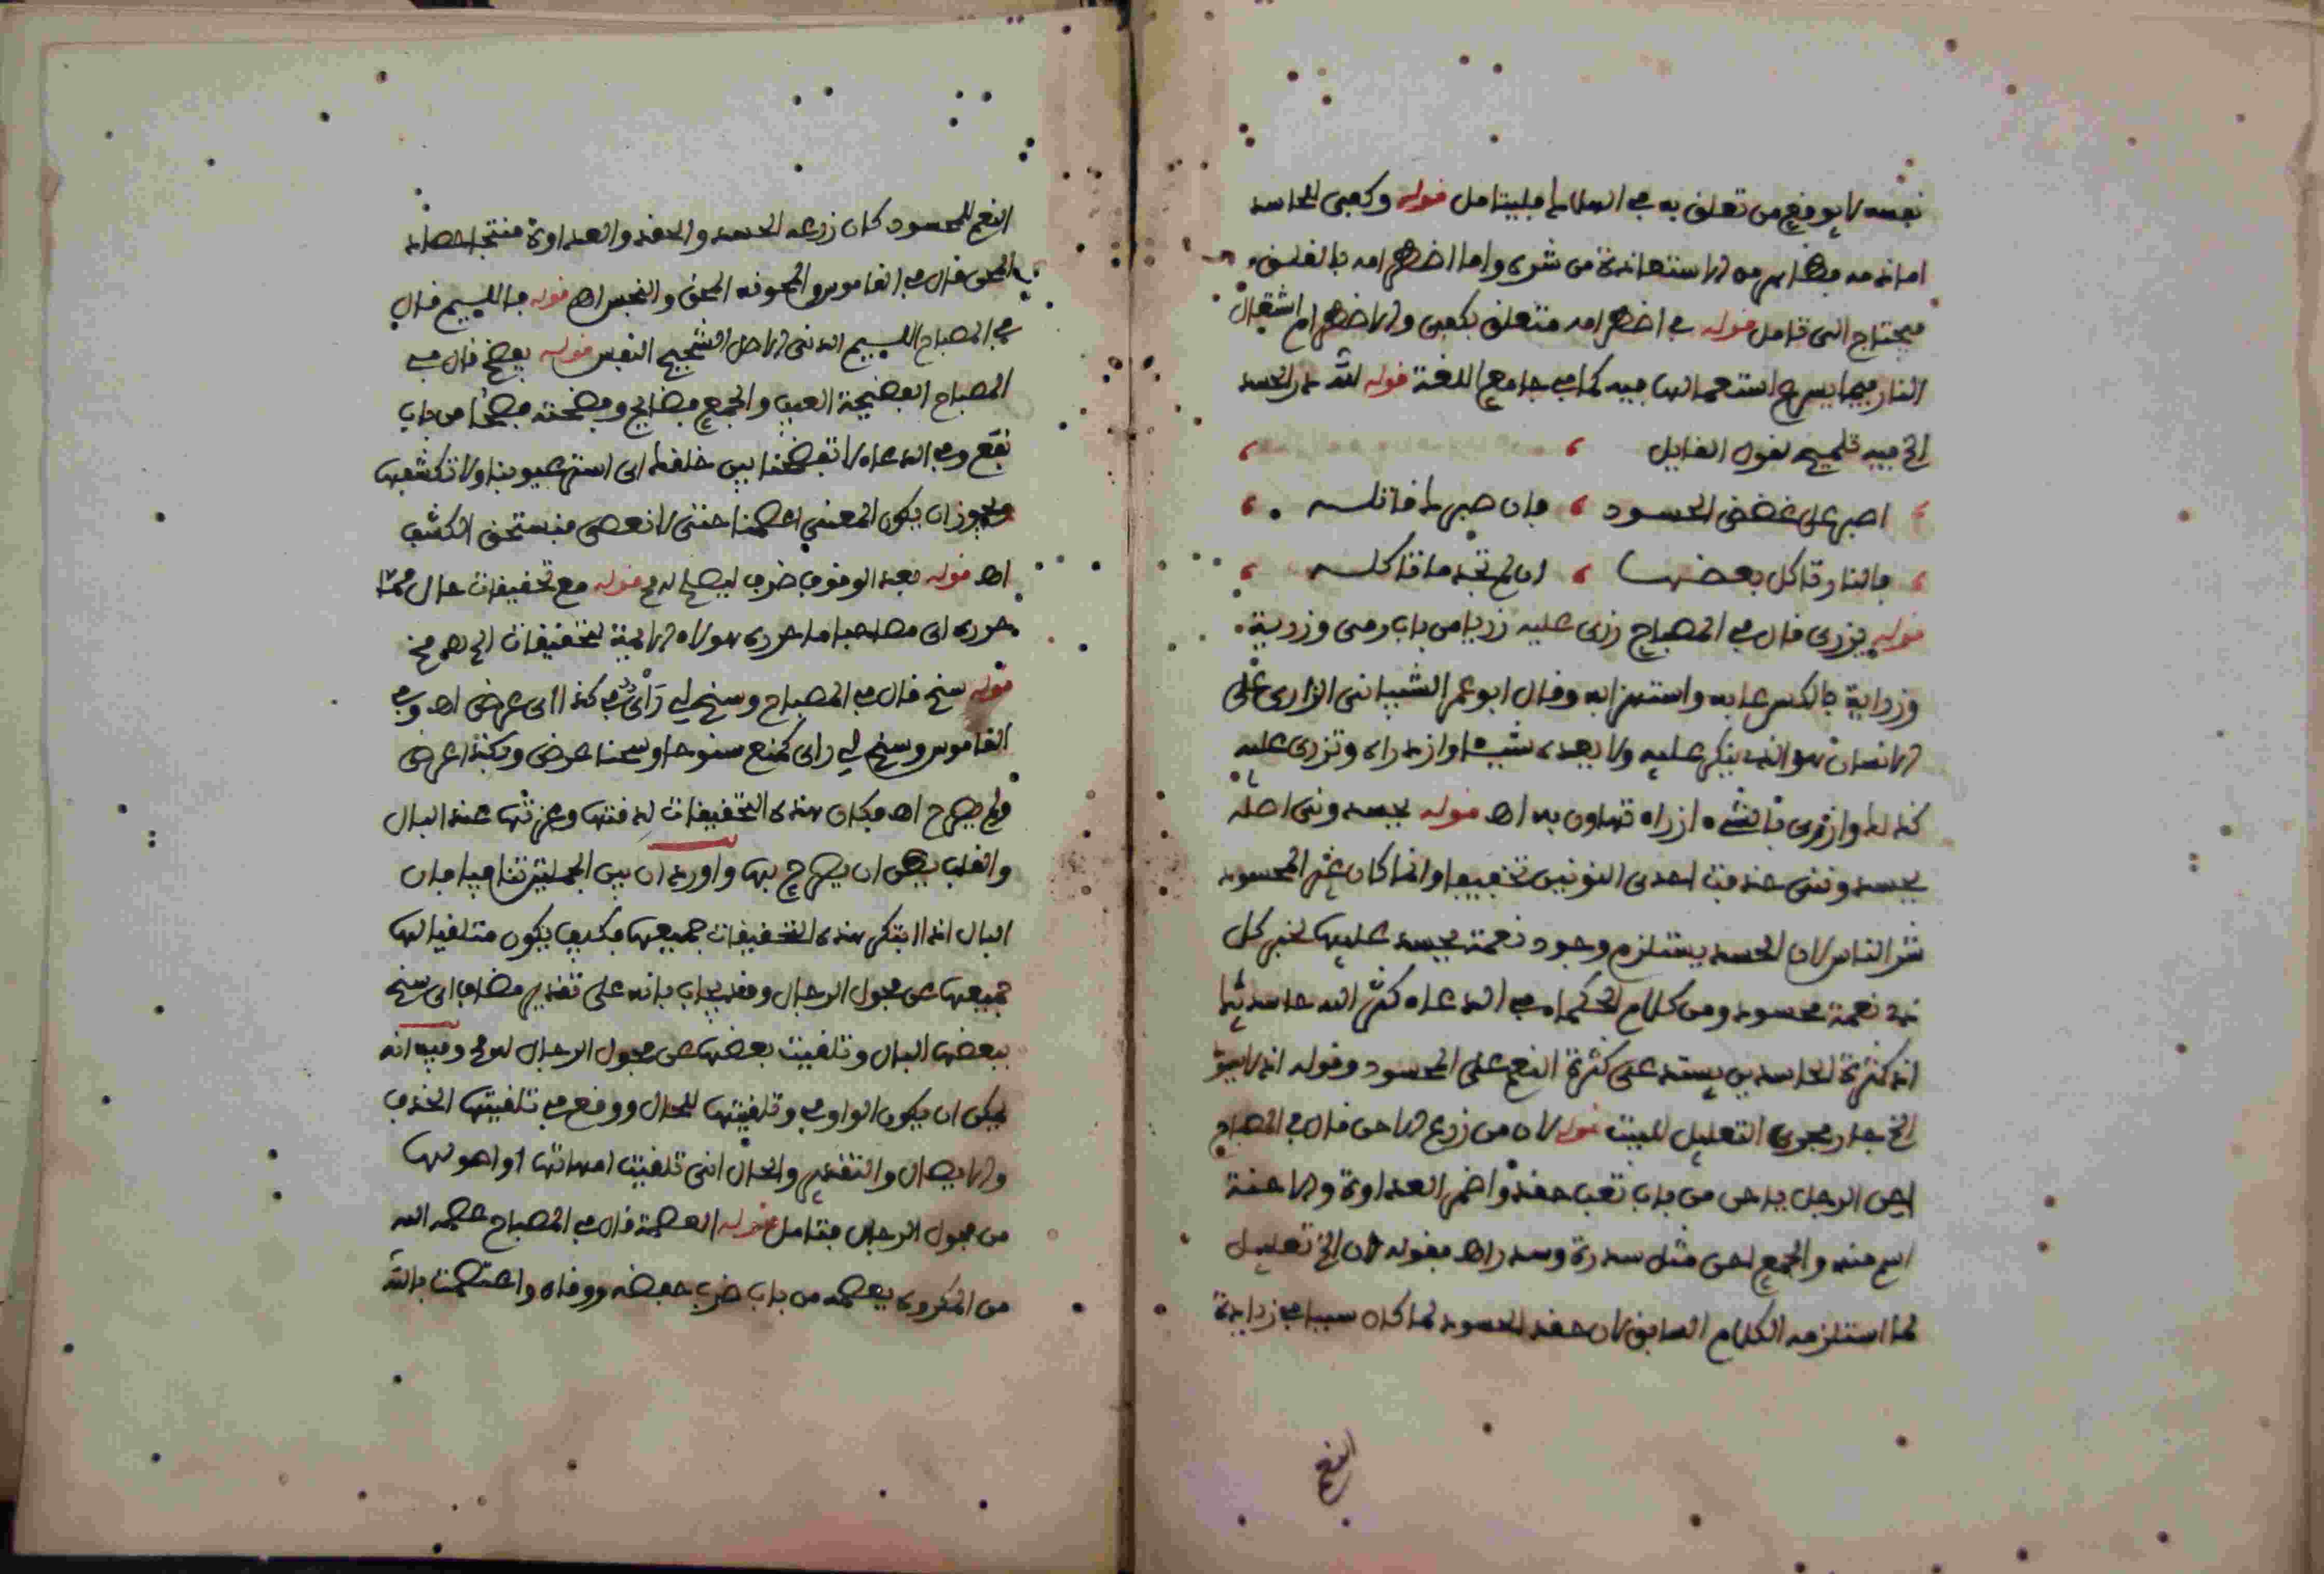 نفسه لا يوقع من تعلق به في الهلاك فليتامل قوله وكفى للحاسد
اما نه مه فظاهر من الاستعاذة من شره واما اضطرامه بالقلق
فيحتاج الى تامل قوله في اضطرامه متعلق بكفى والاضطرام اشتعال
النار فيما يسرع اشتعالها فيه كما في جامع اللغة قوله لله در الحسد
الخ فيه تلميح لقول القايل
اصبر على غضض الحسود فان صبرك قاتله
فالنار تاكل بعضها ان لم تجد ما تاكله
قوله يزري قال في المصباح زرى عليه زريا من باب رمى وزرية
وزراية بالكسر عابه واستهزا به وقال ابو عمر الشيباني الزاري على
الانسان هو الذي ينكر عليه ولا يعده شيئا وازدراه وتزرى عليه
كذلك وازرى بالشيء ازراه تهاون به اهـ قوله يحسدوني اصله
يحسدونني حذفت احدى النونين تخفيفا وانما كان غير المحسود
شر الناس لان الحسد يستلزم وجود نعمة يحسد عليها لخبر كل
ذي نعمة محسود ومن كلام الحكماء في الدعاء كثر الله حاسديك
اذ كثرة الحاسدين يستدعى كثرة النعم على المحسود وقوله اذ لا يسو
الخ جار مجرى التعليل للبيت قوله لان من زرع الاحن قال في المصباح
احن الرجل ياحن من باب تعب حقد واضمر العداوة والاحنة
اسم منه والجمع احن مثل سدرة وسدر اهـ فقوله لان الخ تعليل
لما استلزمه الكلام السابق لان حقد الحسود لما كان سببا في زيادة
النعم
النعم للمحسود كان زرعه الحسد والحقد والعداوة منتجا حصاده
المحن قال في القاموس والمحوقه المحق والنجس اهـ قوله فاللييم قال
في المصباح اللييم الدني الاصل الشحيح النفس قوله يفضح قال في
المصباح الفضيحة العيب والجمع فضايح وفضحته فضحا من باب
نفع وفي الدعاء لا تفضحنا بين خلقك اي استر عيوبنا ولا تكشفها
ويجوز ان يكون المعنى اعصمنا حتى لا نعصي فنستحق الكشف
اهـ قوله بعد الوقوف ظرف ليصلح له قوله مع تحقيقات حال مما
حرره اي مصاحبا ما حرره هولاء الايمة لتحقيقات الخ
قوله سنح قال في المصباح وسنح لي راي في كذا اي عرض اهـ وفي
القاموس وسنح لي راي كمنع سنوحا وسنحا عرض وبكذا عرض
ولم يصرح اهـ فكان هذه التحقيقات لدقتها وعزتها عند البال
والقلب يمكن ان يصرح بها واورد ان بين الجملتين تنافيا فان
البال اذا ابتكر هذه التحقيقات جميعها فكيف يكون متلقيا لها
جميعها من فحول الرجال وقد يجاب بانه على تقدير مضاف اي سنح
ببعضها البال وتلقيت بعضها من فحول الرجال وفيه انه
يمكن ان يكون الواو في وتلقيتها للحال ووقع في تلقيتها الحذف
والايصال والتقدير والحال اني تلقيت امهاتها او اصولها
من فحول الرجال فتامل قوله العصمة قال في المصباح عصمه الله
من المكروه يعصمه من باب ضرب حفظه ووقاه واعتصمت بالله